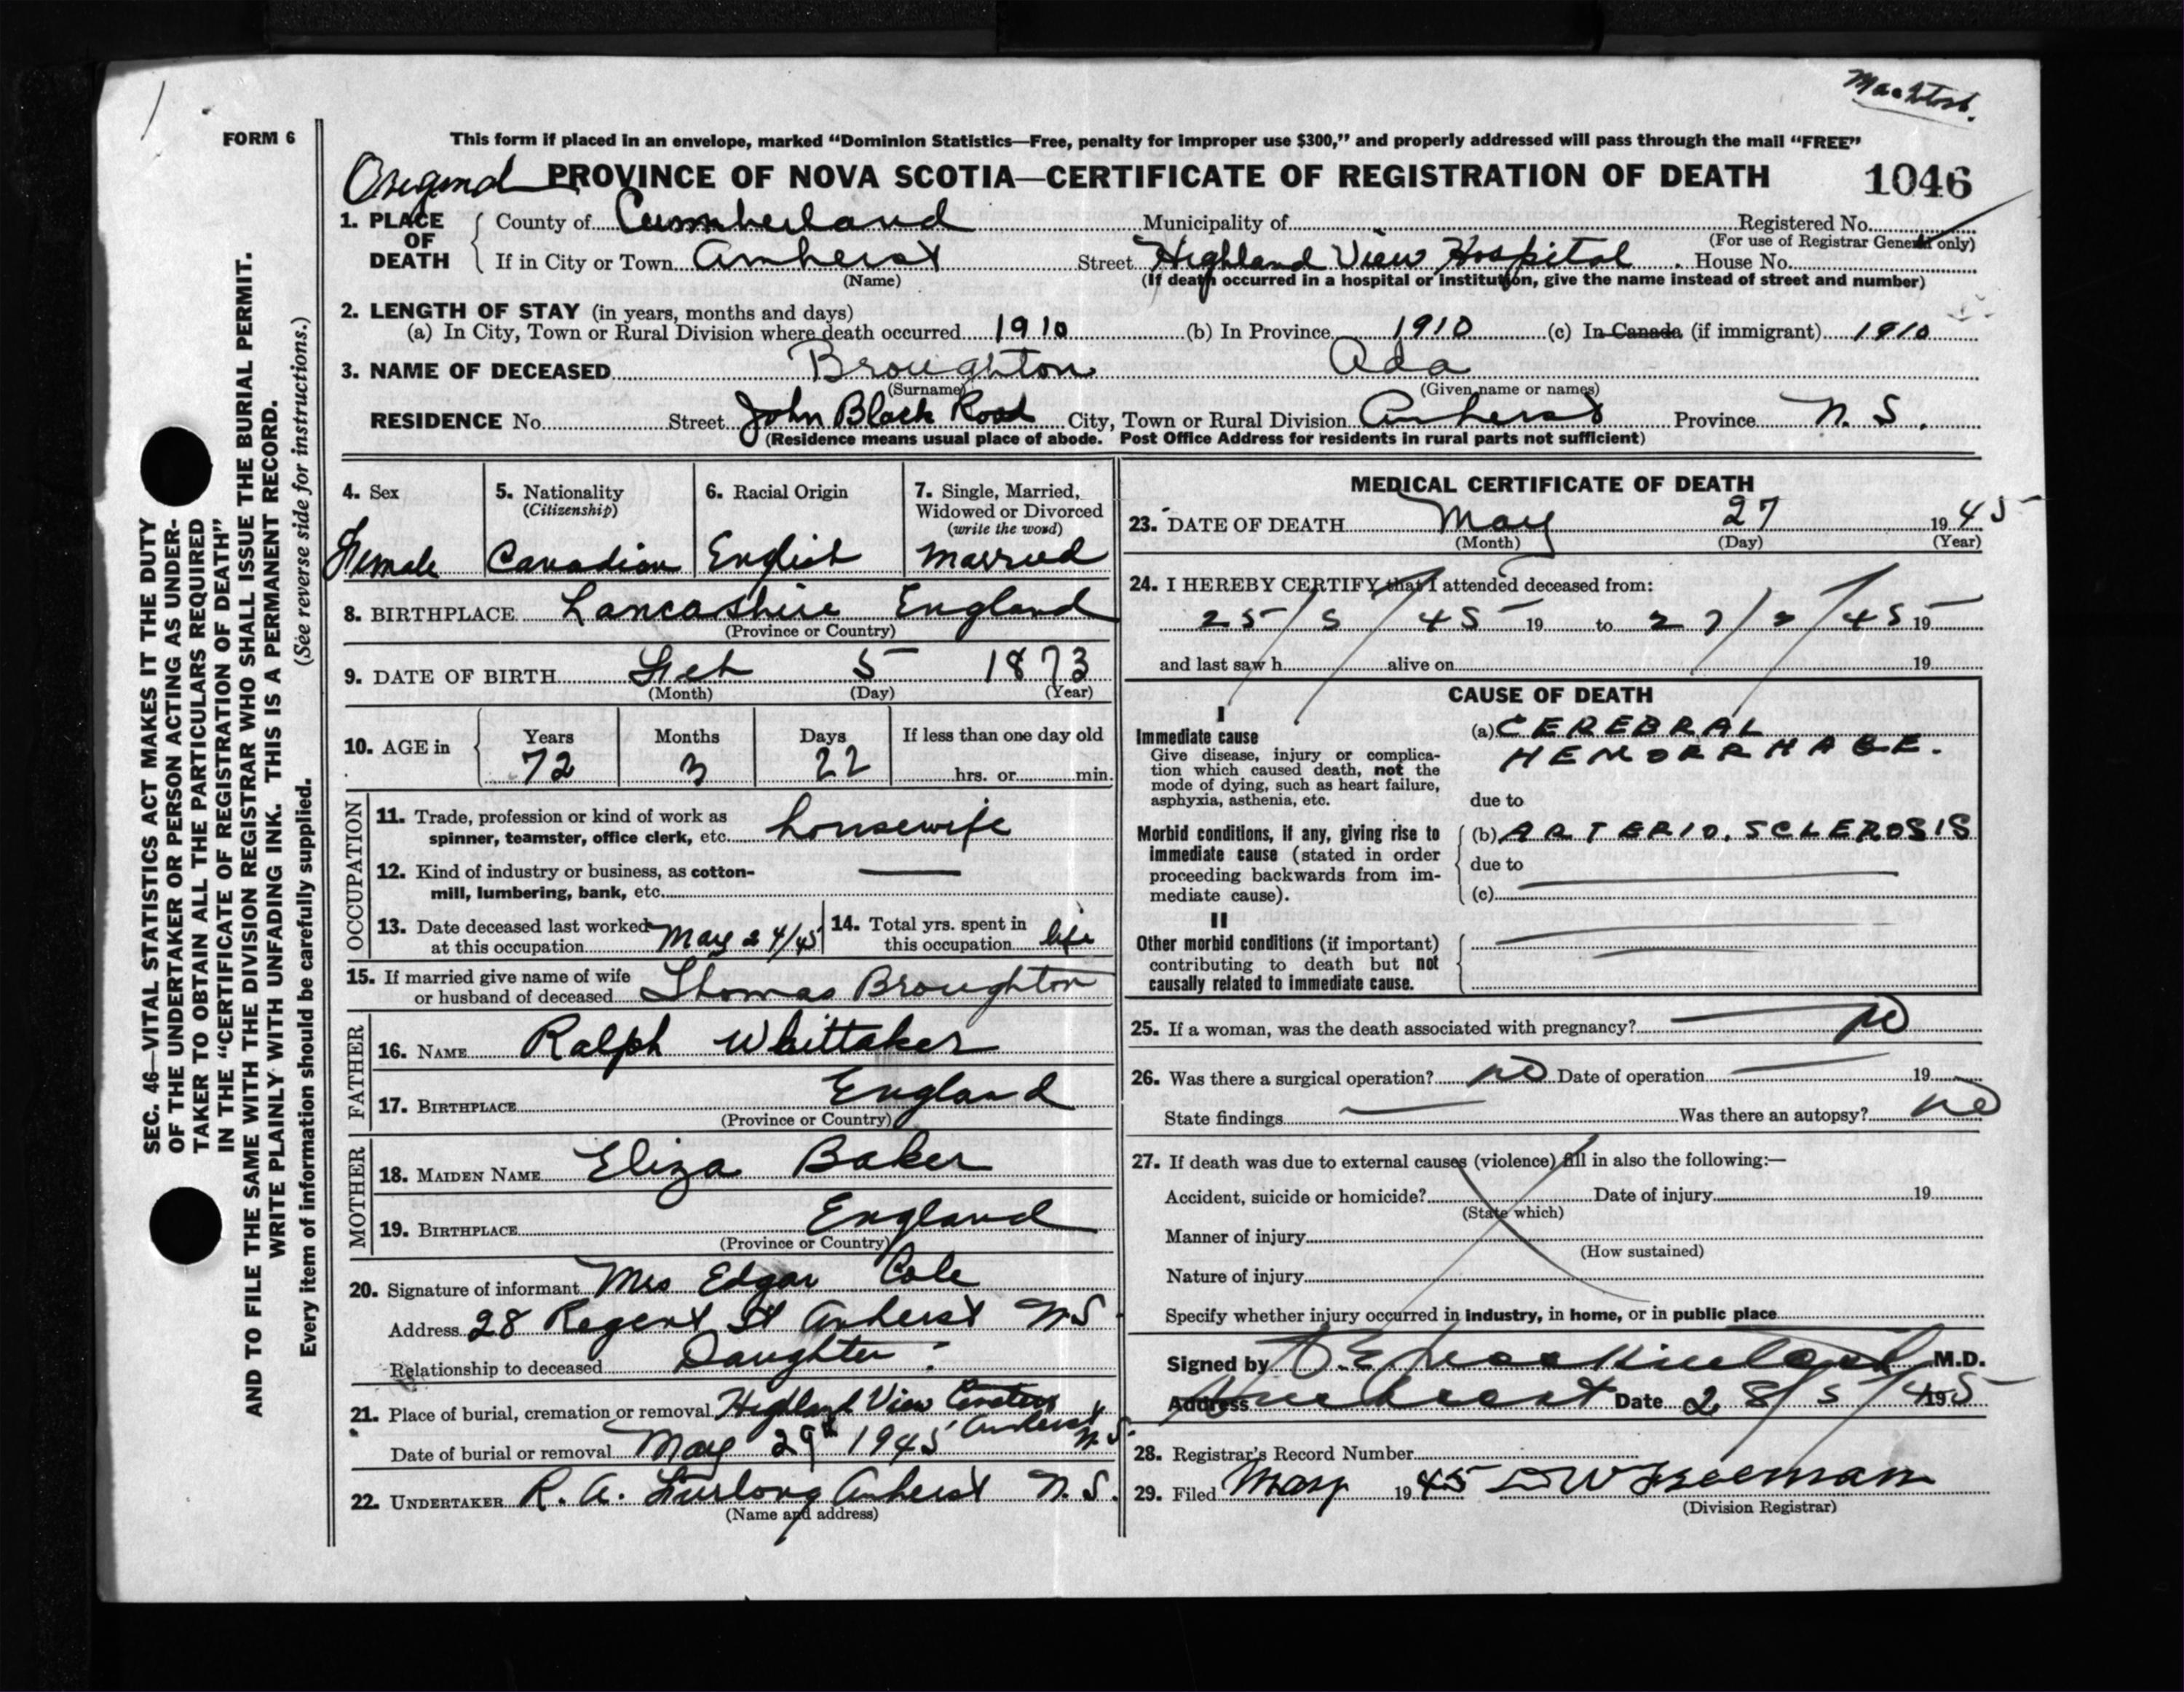 FORM 6
This form if placed in an envelope, marked "Dominion Statistics—Free, penalty for improper use $300," and properly addressed will pass through the mail "FREE"
PROVINCE OF NOVA SCOTIA—CERTIFICATE OF REGISTRATION OF DEATH 1046
1. PLACE OF DEATH County of Cumberland Municipality of Registered No.
(For use of Registrar General only)
If in City or Town Amherst Street Highland View Hospital House No.
(Name) (If death occurred in a hospital or institution, give the name instead of street and number)
2. LENGTH OF STAY (in years, months and days)
(a) In City, Town or Rural Division where death occurred 1910 (b) In Province 1910 (c) In Canada (if immigrant) 1910
3. NAME OF DECEASED Broughton Ada
(Surname) (Given name or names)
RESIDENCE No. Street John Black Road City, Town or Rural Division Amherst Province N.S.
(Residence means usual place of abode. Post Office Address for residents in rural parts not sufficient)
4. Sex
Female
5. Nationality
(Citizenship)
Canadian
6. Racial Origin
English
7. Single, Married,
Widowed or Divorced
(write the word)
Married
8. BIRTHPLACE Lancashire England
(Province or Country)
9. DATE OF BIRTH Feb 5 1873
(Month) (Day) (Year)
10. AGE in Years Months Days If less than one day old
72 3 22 hrs. or min.
OCCUPATION
11. Trade, profession or kind of work as
spinner, teamster, office clerk, etc. housewife
12. Kind of industry or business, as cotton-
mill, lumbering, bank, etc. —
13. Date deceased last worked
at this occupation May 24/45
14. Total yrs. spent in
this occupation life
15. If married give name of wife
or husband of deceased Thomas Broughton
FATHER
16. NAME Ralph Whittaker
17. BIRTHPLACE England
(Province or Country)
MOTHER
18. MAIDEN NAME Eliza Baker
19. BIRTHPLACE England
(Province or Country)
20. Signature of informant Mrs Edgar Cole
Address 28 Regent St Amherst N S
Relationship to deceased Daughter
21. Place of burial, cremation or removal Highland View
Amherst N.S.
Date of burial or removal May 29th 1945
22. UNDERTAKER R. A. Furlong Amherst N.S.
(Name and address)
MEDICAL CERTIFICATE OF DEATH
23. DATE OF DEATH May 27 1945
(Month) (Day) (Year)
24. I HEREBY CERTIFY that I attended deceased from:
25/5/45 19 to 27/ /45 19
and last saw h alive on 19
CAUSE OF DEATH
I
Immediate cause
Give disease, injury or complica-
tion which caused death, not the
mode of dying, such as heart failure,
asphyxia, asthenia, etc.
(a) CEREBRAL
HEMORRHAGE.
due to
Morbid conditions, if any, giving rise to
immediate cause (stated in order
proceeding backwards from im-
mediate cause).
(b) ARTERIO.SCLEROSIS
due to
(c)
II
Other morbid conditions (if important)
contributing to death but not
causally related to immediate cause.
25. If a woman, was the death associated with pregnancy? no
26. Was there a surgical operation? no Date of operation 19
State findings Was there an autopsy? no
27. If death was due to external causes (violence) fill in also the following:—
Accident, suicide or homicide? Date of injury 19
(State which)
Manner of injury
(How sustained)
Nature of injury
Specify whether injury occurred in industry, in home, or in public place
Signed by M.D.
Address Amherst Date 28/5/1945
28. Registrar's Record Number
29. Filed May 1945 D W Freeman
(Division Registrar)
SEC. 46—VITAL STATISTICS ACT MAKES IT THE DUTY
OF THE UNDERTAKER OR PERSON ACTING AS UNDER-
TAKER TO OBTAIN ALL THE PARTICULARS REQUIRED
IN THE "CERTIFICATE OF REGISTRATION OF DEATH"
AND TO FILE THE SAME WITH THE DIVISION REGISTRAR WHO SHALL ISSUE THE BURIAL PERMIT.
WRITE PLAINLY WITH UNFADING INK. THIS IS A PERMANENT RECORD.
Every item of information should be carefully supplied. (See reverse side for instructions.)